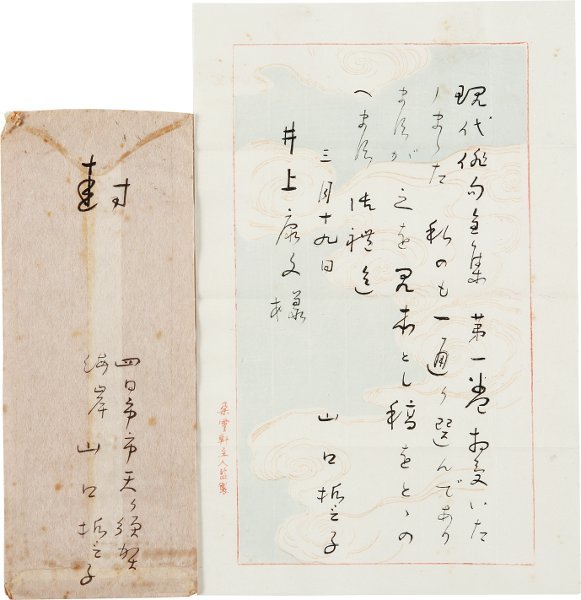 現代俳句全集 第一巻 お受いた
しました 私のも一通り選んであり
ますが 之を見本とし稿をとゝの
へます 御禮迄
三月十九日
山口誓子
井上康文様
封
四日市市天ヶ須賀
海岸 山口誓子